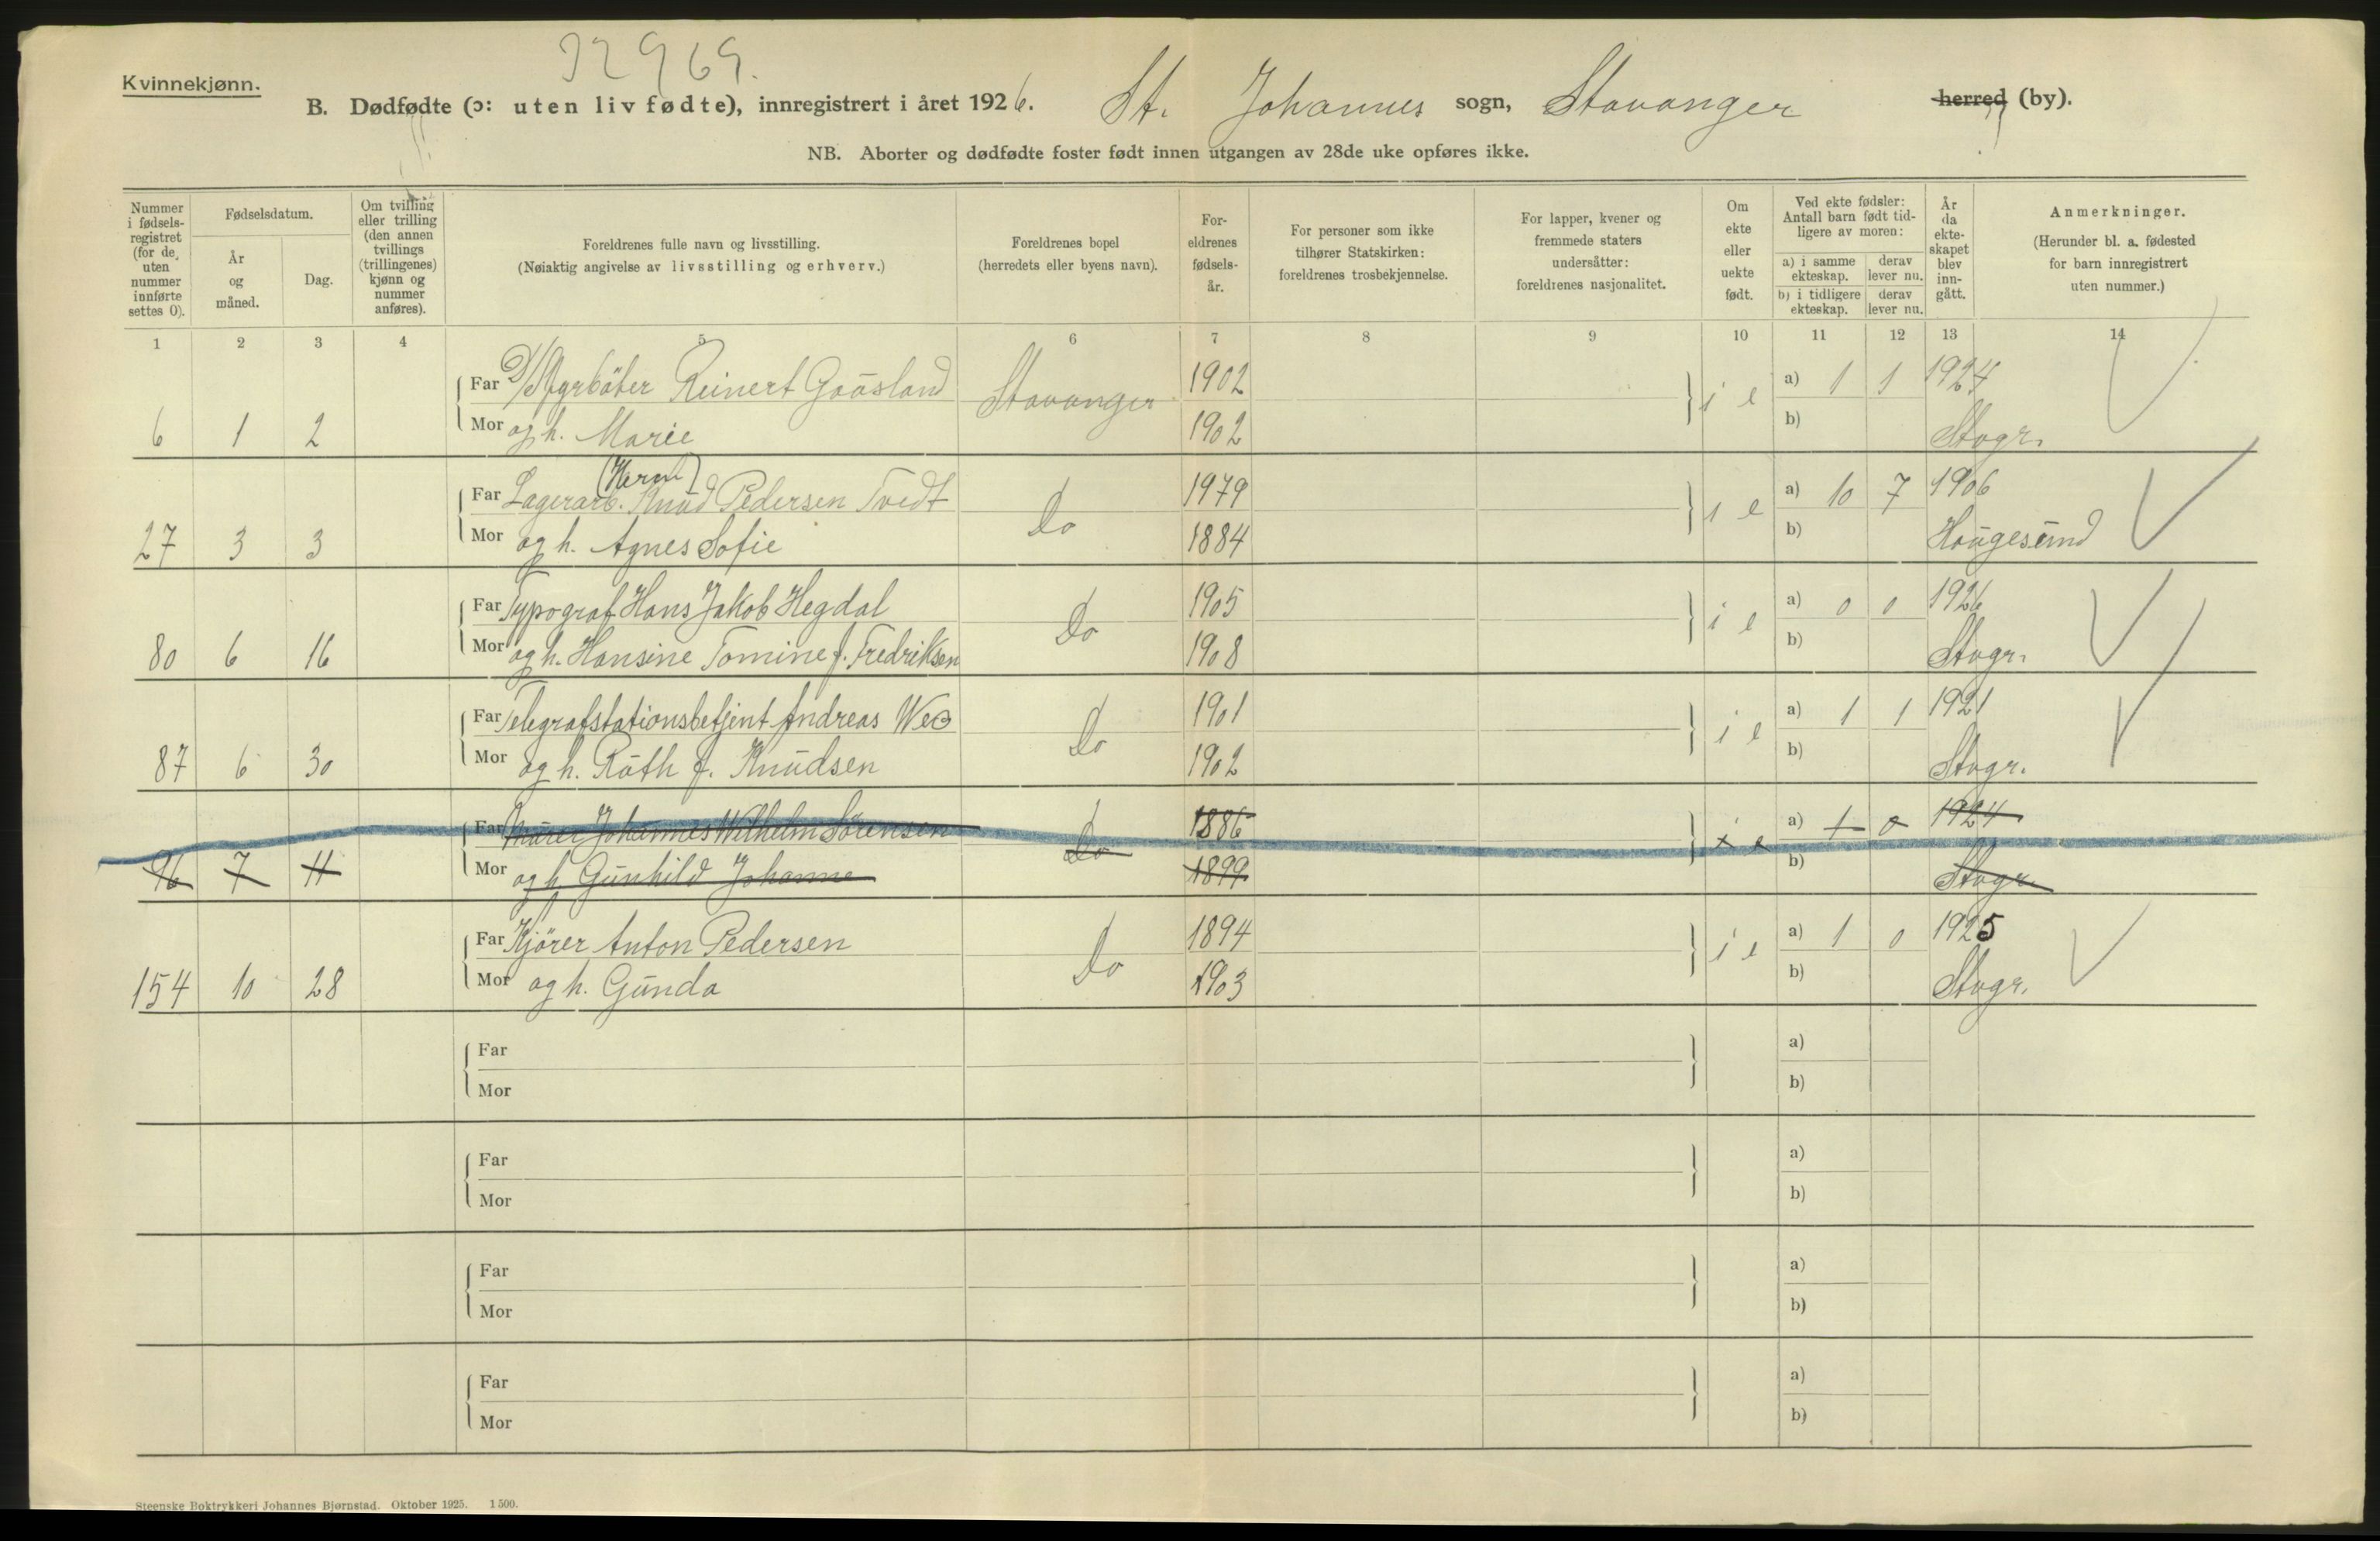 32969.
Kvinnekjønn.
B. Dødfødte (ɔ: uten liv fødte), innregistrert i året 1926. St. Johannes sogn, Stavanger herred (by).
NB. Aborter og dødfødte foster født innen utgangen av 28de uke opføres ikke.
Nummer i fødsels-registret (for de uten nummer innførte settes 0).
Fødselsdatum.
År og måned.
Dag.
Om tvilling eller trilling (den annen tvillings (trillingenes) kjønn og nummer anføres).
Foreldrenes fulle navn og livsstilling.
(Nøiaktig angivelse av livsstilling og erhverv.)
Foreldrenes bopel
(herredets eller byens navn).
For-eldrenes fødsels-år.
For personer som ikke tilhører Statskirken: foreldrenes trosbekjennelse.
For lapper, kvener og fremmede staters undersåtter: foreldrenes nasjonalitet.
Om ekte eller uekte født.
Ved ekte fødsler: Antall barn født tid-ligere av moren:
a) i samme ekteskap. derav lever nu.
b) i tidligere ekteskap. derav lever nu.
År da ekte-skapet blev inn-gått.
Anmerkninger.
(Herunder bl. a. fødested for barn innregistrert uten nummer.)
1 2 3 4 5 6 7 8 9 10 11 12 13 14
Far Reinert Gaüsland Stavanger 1902 i e a) 1 1 1924
6 1 2 Mor og h. Marie 1902 b) Stvgr.
(Herm)
Far Lagerarb. Knud Pedersen Tvedt Do 1979 i e a) 10 7 1906
27 3 3 Mor og h. Agnes Sofie 1884 b) Haügesünd
Far Typograf Hans Jakob Hegdal Do 1905 i e a) 0 0 1926
80 6 16 Mor og h. Hansine Tomine f. Fredriksen 1908 b) Stvgr.
Far Telegrafstationsbetjent Andreas Do 1901 i e a) 1 1 1921
87 6 30 Mor og h. Rüth f. Knüdsen 1902 b) Stvgr.
Far Mürer Johannes Wilhelm Sörensen Do 1886 i e a) 1 0 1924
96 7 11 Mor og h. Günhild Johanne 1899 b) Stvgr.
Far Kjörer Anton Pedersen Do 1894 i e a) 1 0 1925
154 10 28 Mor og h. Günda 1903 b) Stvgr.
Far a)
Mor b)
Far a)
Mor b)
Far a)
Mor b)
Far a)
Mor b)
Steenske Boktrykkeri Johannes Bjørnstad. Oktober 1925. 1500.